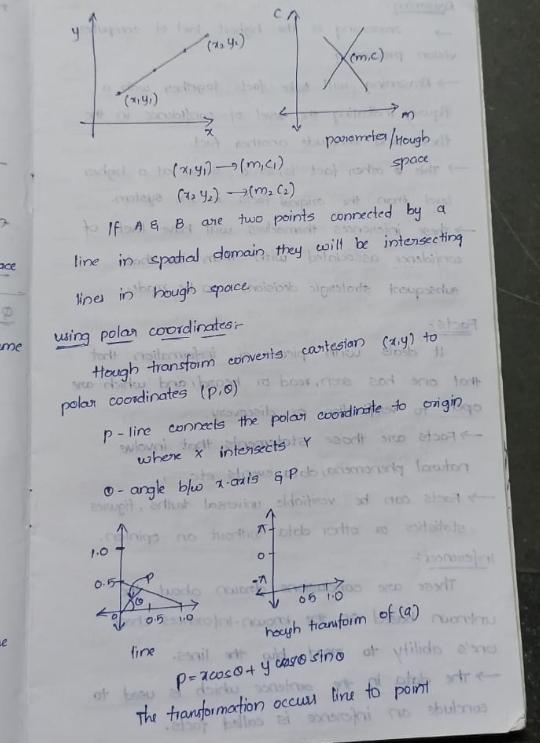 y
(x2 y2)
(x1 y1)
x
C
(m, c)
m
parameter/Hough
space
(x1 y1) → (m1 c1)
(x2 y2) → (m2 c2)
If A & B are two points connected by a
line in spatial domain they will be intersecting
lines in hough space
using polar coordinates:-
Hough transform converts cartesian (x,y) to
polar coordinates (p,θ)
p - line connects the polar coordinate to origin
where x intersects Y
θ - angle b/w x-axis & P
1.0
0.5
P
θ
0
0.5 1.0
line
π
0
-π
0.5 1.0
hough transform of (a)
P = xcosθ + y cosθ sinθ
The transformation occurs line to point